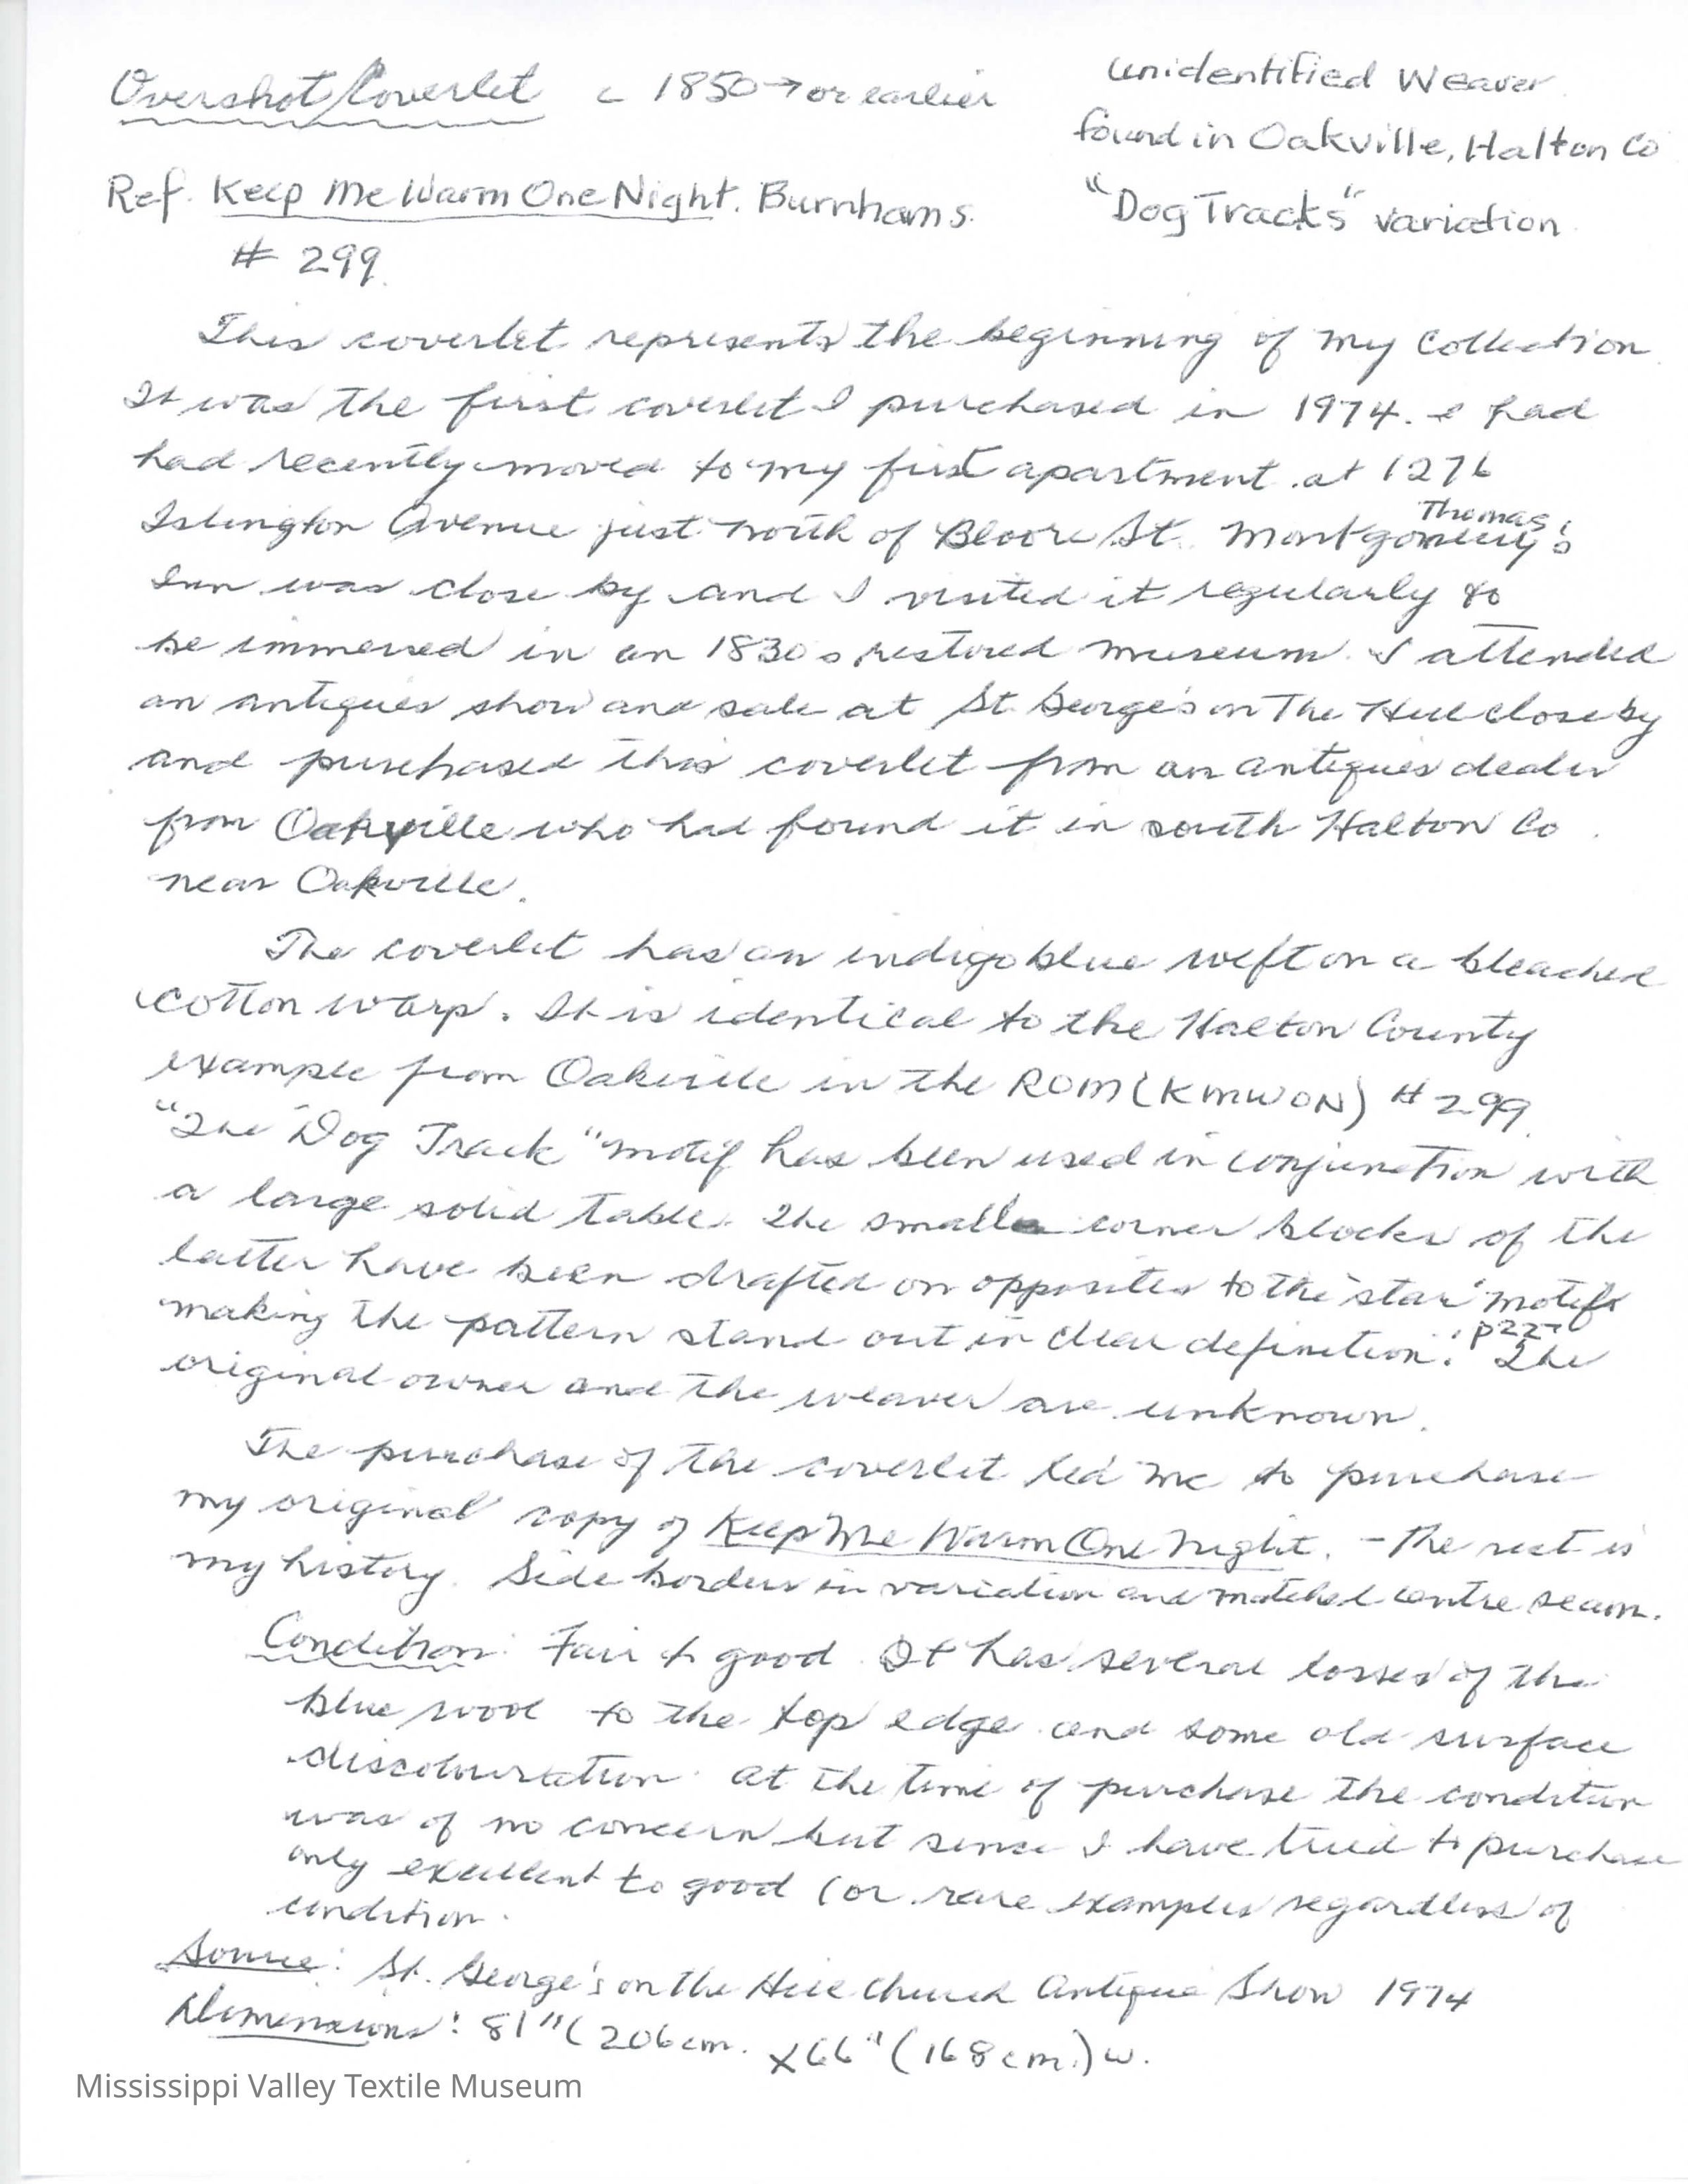 Overshot Coverlet c 1850 → or earlier
Unidentified Weaver
found in Oakville, Halton Co
"Dog Tracks" variation
Ref. Keep Me Warm One Night. Burnhams.
# 299.
This coverlet represents the beginning of my Collection.
It was the first coverlet I purchased in 1974. I had
had recently moved to my first apartment at 1276
Islington Avenue just north of Bloor St. Montgomery's
Thomas
Inn was close by and I visited it regularly to
be immersed in an 1830s restored museum. I attended
an antiques show and sale at St George's on The Hill close by
and purchased this coverlet from an antiques dealer
from Oakville who had found it in south Halton Co.
near Oakville.
The coverlet has an indigo blue weft on a bleached
cotton warp. It is identical to the Halton County
example from Oakville in the ROM (KMWON) # 299.
"The Dog Track" motif has been used in conjunction with
a large solid table. The small corner blocks of the
latter have been drafted on opposites to the 'star' motifs
making the pattern stand out in clear definition." p227 The
original owner and the weaver are unknown.
The purchase of the coverlet led me to purchase
my original copy of Keep Me Warm One Night. - The rest is
my history. Side borders in variation and matched centre seam.
Condition: Fair to good. It has several losses of the
blue wool to the top edge and some old surface
discolouration. At the time of purchase the condition
was of no concern but since I have tried to purchase
only excellent to good (or rare examples regardless of
condition.
Source: St. George's on the Hill Church Antique Show 1974
Dimensions: 81" (206 cm. x 66" (168 cm.) w.
Mississippi Valley Textile Museum